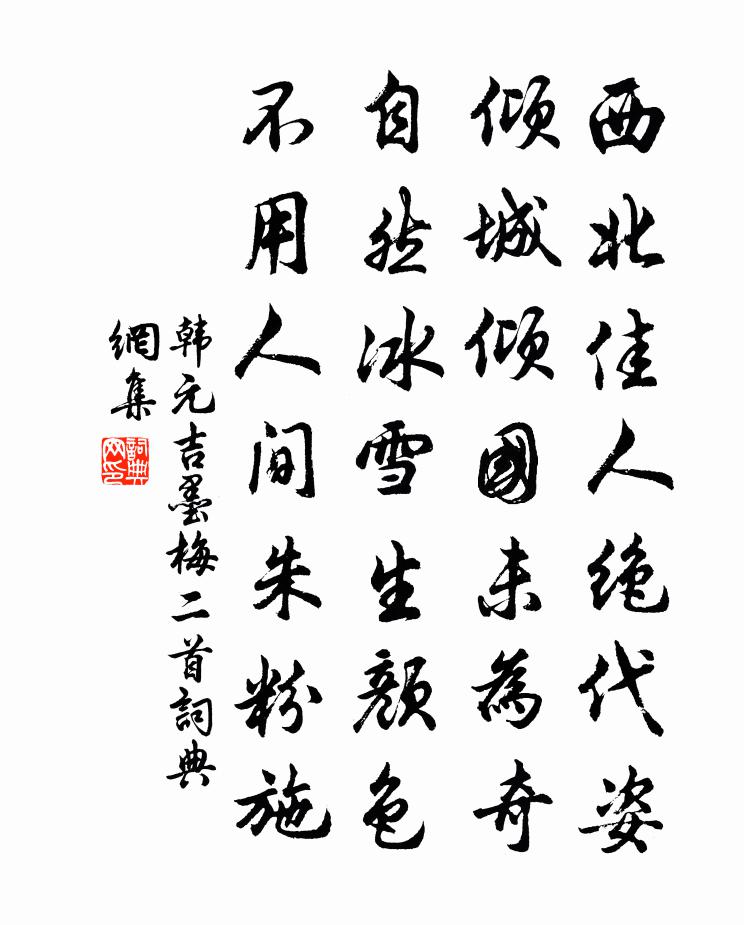 西北佳人绝代姿
倾城倾國未為奇
自然冰雪生颜色
不用人间朱粉施
韩元吉墨梅二首詞典
網集
詞典
网印